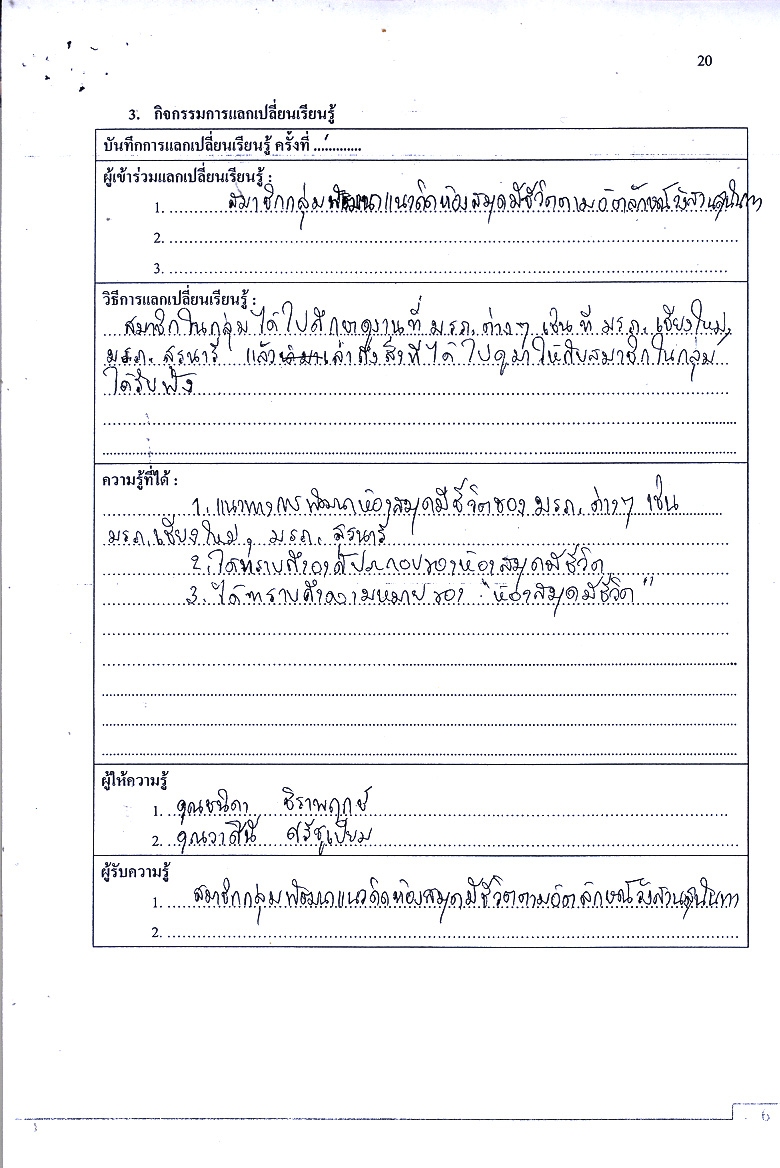 20
3. กิจกรรมการแลกเปลี่ยนเรียนรู้
บันทึกการแลกเปลี่ยนเรียนรู้ ครั้งที่ ...1...........
ผู้เข้าร่วมแลกเปลี่ยนเรียนรู้ :
1. สมาชิกกลุ่มพัฒนาแนวคิดห้องสมุดมีชีวิตตามอัตลักษณ์วังสวนสุนันทา
2.
3.
วิธีการแลกเปลี่ยนเรียนรู้ :
สมาชิกในกลุ่มได้ไปศึกษาดูงานที่ มรภ. ต่างๆ เช่น ที่ มรภ. เชียงใหม่,
มรภ. สุรนารี แล้วเล่าถึงสิ่งที่ได้ไปดูมาให้กับสมาชิกในกลุ่ม
ได้รับฟัง
ความรู้ที่ได้ :
1. แนวทางการพัฒนาห้องสมุดมีชีวิตของ มรภ. ต่างๆ เช่น
มรภ. เชียงใหม่, มรภ. สุรนารี
2. ได้ทราบถึงองค์ประกอบของห้องสมุดมีชีวิต
3. ได้ทราบถึงความหมายของ "ห้องสมุดมีชีวิต"
ผู้ให้ความรู้
1. คุณชนิดา จิราพฤกษ์
2. คุณวาสินี ศรีชูเปี่ยม
ผู้รับความรู้
1. สมาชิกกลุ่มพัฒนาแนวคิดห้องสมุดมีชีวิตตามอัตลักษณ์วังสวนสุนันทา
2.
6